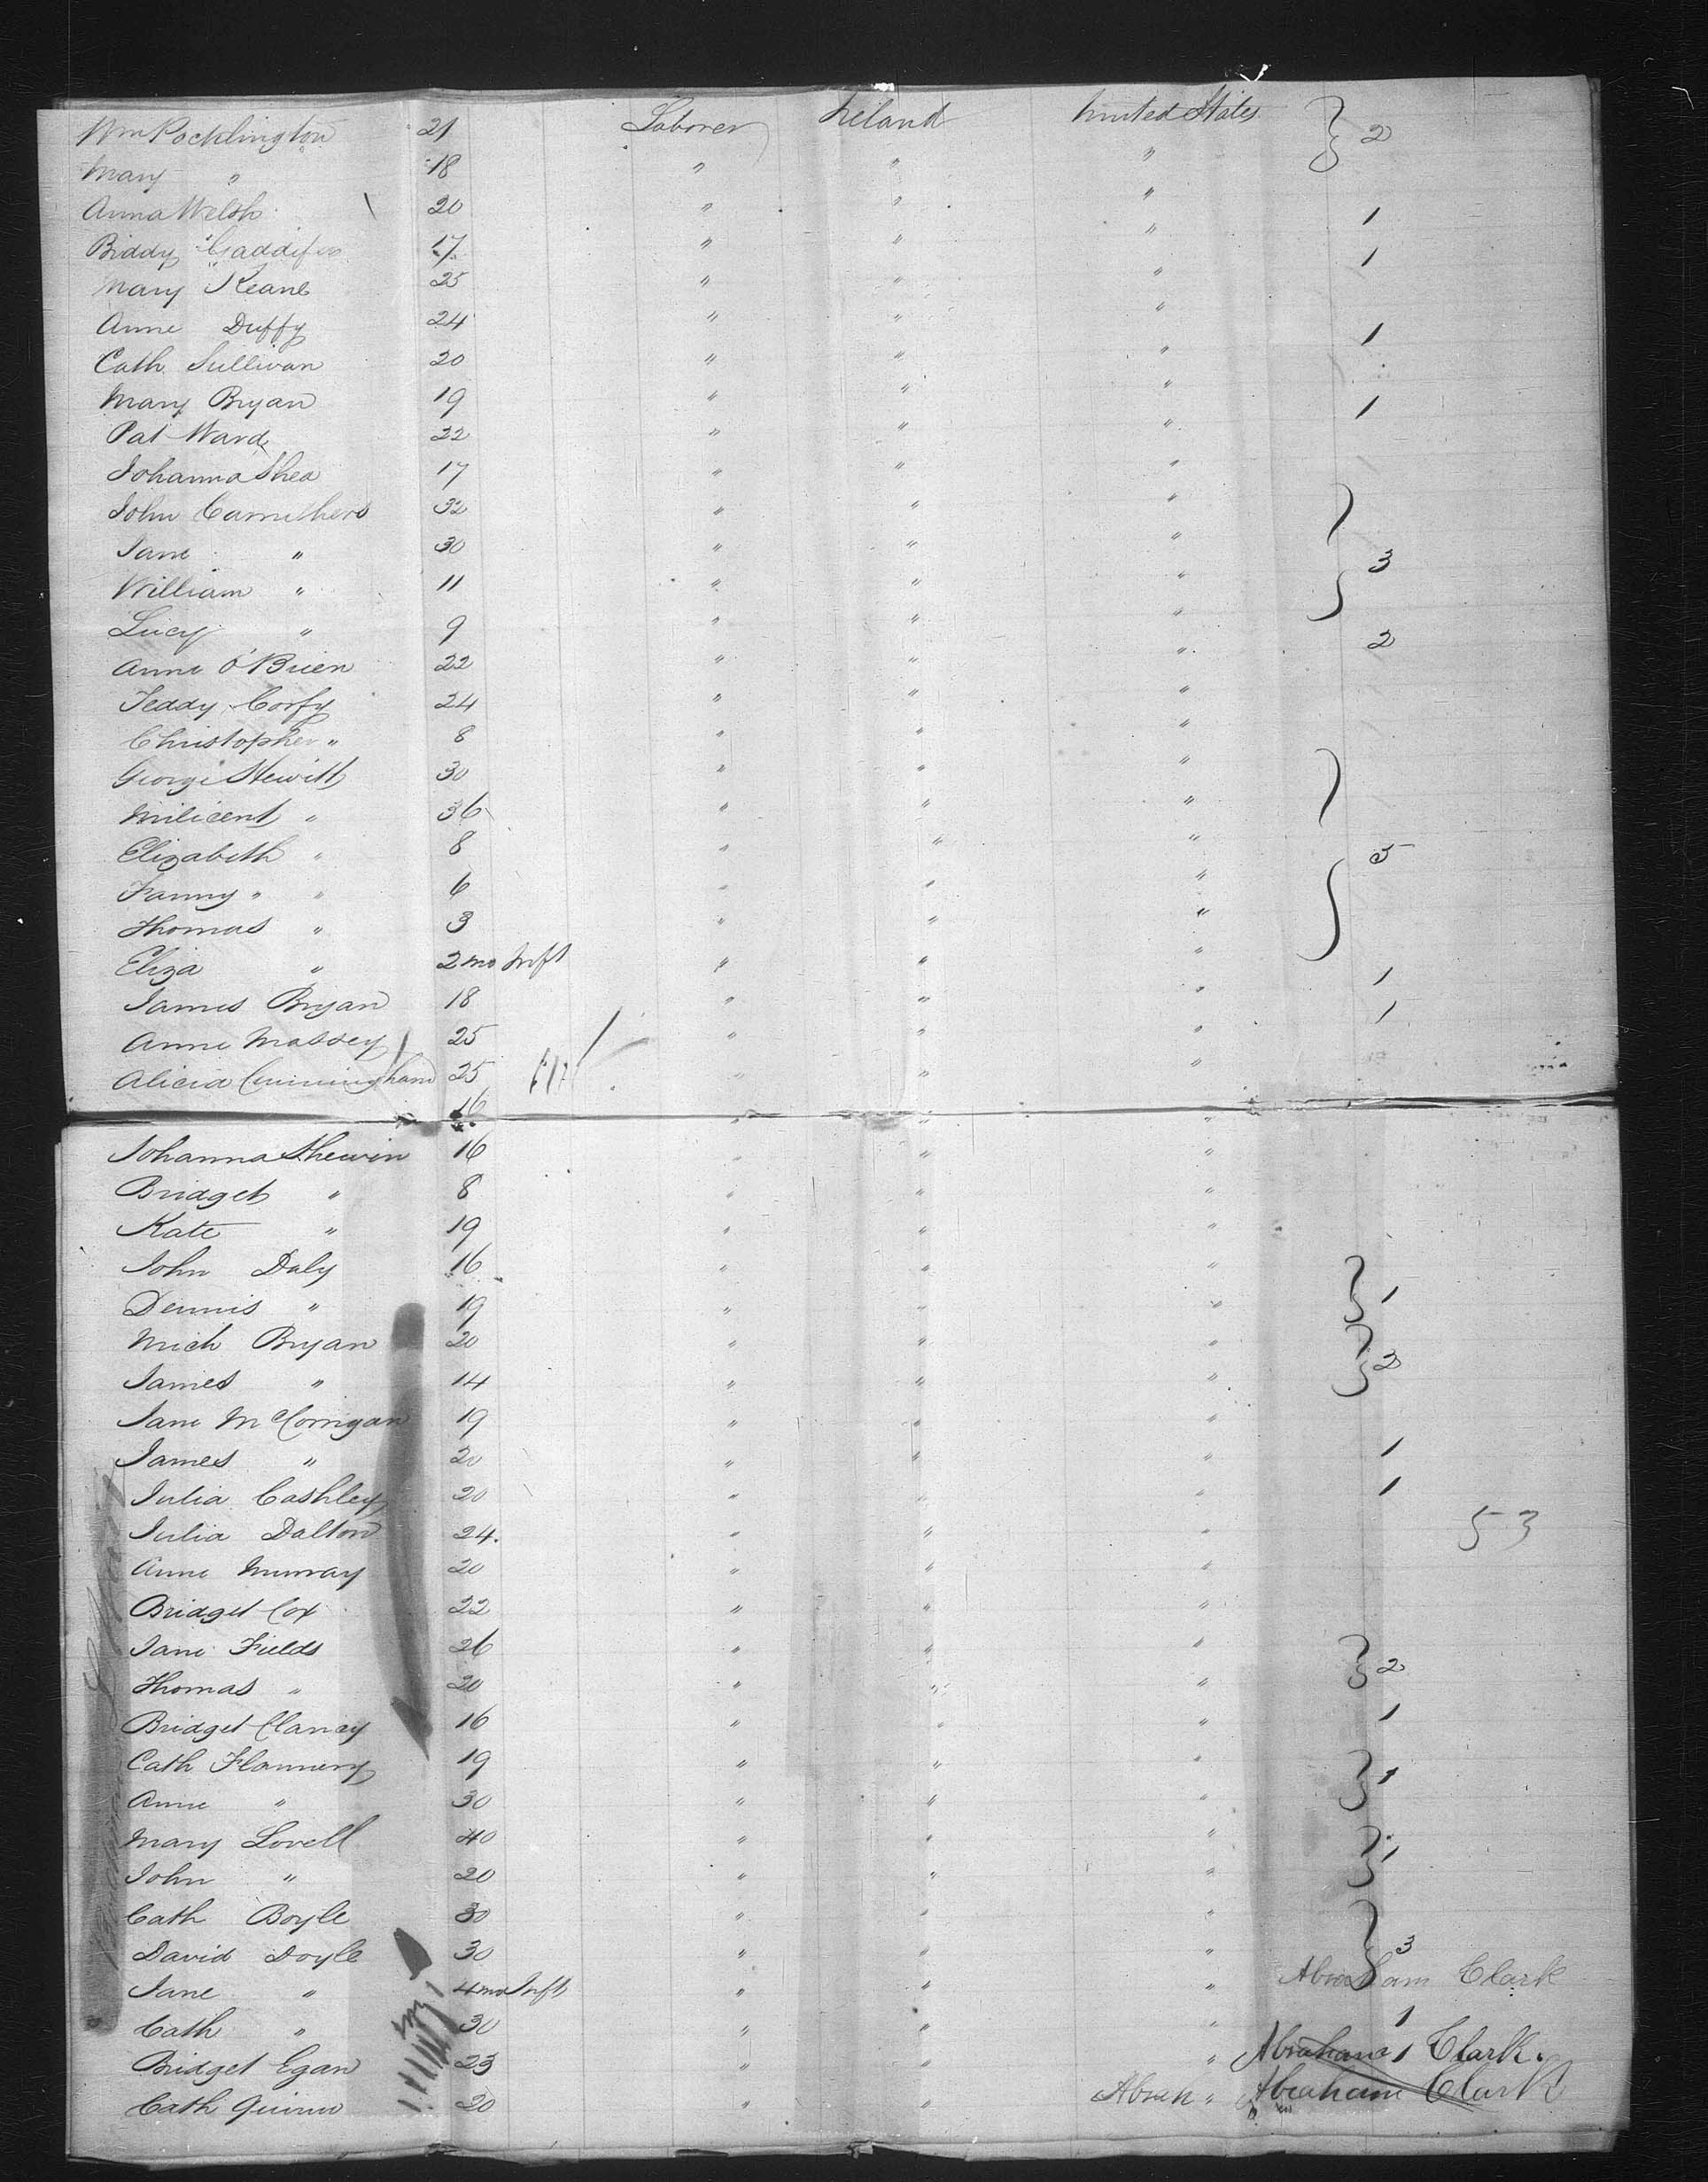 Wm Pocklington 21 Laborer Ireland United States 2
Mary " 18 " " "
Anna Welsh 20 " " " 1
Biddy 17 " " " 1
Mary Keane 25 " " "
Anne Duffy 24 " " " 1
Cath Sullivan 20 " " "
Mary Bryan 19 " " " 1
Pat Ward 22 " " "
Johanna Shea 17 " " "
John Carruthers 32 " " "
Jane " 30 " " " 3
William " 11 " " "
Lucy " 9 " " " 2
Anne O'Brien 22 " " "
Teddy Corfy 24 " " "
Christopher " 8 " " "
George Hewitt 30 " " "
Milicent " 36 " " "
Elizabeth " 8 " " " 5
Fanny " " 6 " " "
Thomas " 3 " " "
Eliza " 2 mo Inft " " " 1
James Bryan 18 " " " 1
Anne Massey 25 " " "
Alicia Cunningham 25 " " "
16 " " "
Johanna Shewin 16 " " "
Bridget " 8 " " "
Kate " 19 " " "
John Daly 16 " " " 1
Dennis " 19 " " "
Mich Bryan 20 " " " 2
James " 14 " " "
Jane McCorrigan 19 " " "
James " 20 " " " 1
Julia Cashley 20 " " " 1
Julia Dalton 24. " " " 53
Anne Murray 20 " " "
Bridget Cox 22 " " "
Jane Fields 26 " " " 2
Thomas " 20 " " "
Bridget Clancy 16 " " " 1
Cath Flannery 19 " " " 1
Anne " 30 " " "
Mary Lovell 40 " " " 1
John " 20 " " "
Cath Boyle 30 " " "
David Doyle 30 " " " 3
Jane " 4 mo Inft " " " Abraham Clark
Cath " 30 " " " 1
Bridget Egan 23 " " " Abraham 1 Clark.
Cath Quinn 20 " " Abrah " Abraham Clark